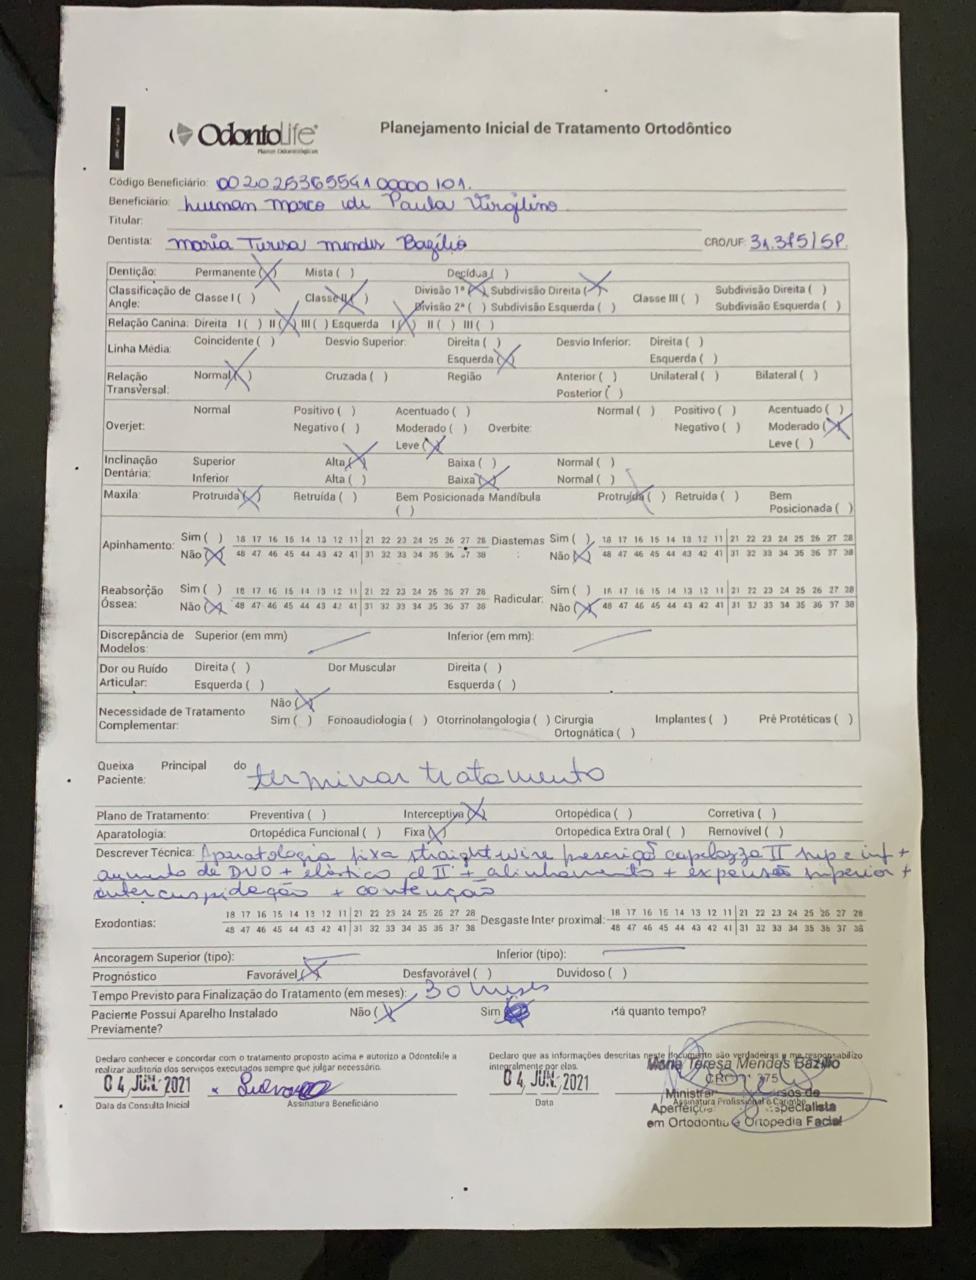 OdontoLife
Planos Odontológicos
Planejamento Inicial de Tratamento Ortodôntico
Código Beneficiário: 00202536559100000101.
Beneficiário: marco de Paula Virgilino
Titular:
Dentista: Maria Teresa mendes Bazílio CRO/UF: 31.375/SP.
Dentição: Permanente (X) Mista ( ) Decídua ( )
Classificação de Angle: Classe I ( ) Classe II (X) Divisão 1ª (X) Subdivisão Direita (X) Classe III ( ) Subdivisão Direita ( )
Divisão 2ª ( ) Subdivisão Esquerda ( ) Subdivisão Esquerda ( )
Relação Canina: Direita I ( ) II (X) III ( ) Esquerda I (X) II ( ) III ( )
Linha Média: Coincidente ( ) Desvio Superior: Direita ( ) Desvio Inferior: Direita ( )
Esquerda (X) Esquerda ( )
Relação Transversal: Normal (X) Cruzada ( ) Região Anterior ( ) Unilateral ( ) Bilateral ( )
Posterior ( )
Normal Positivo ( ) Acentuado ( ) Normal ( ) Positivo ( ) Acentuado ( )
Overjet: Negativo ( ) Moderado ( ) Overbite: Negativo ( ) Moderado (X)
Leve (X) Leve ( )
Inclinação Dentária: Superior Alta (X) Baixa ( ) Normal ( )
Inferior Alta ( ) Baixa (X) Normal ( )
Maxila: Protruída (X) Retruída ( ) Bem Posicionada ( ) Mandíbula Protruída (X) Retruída ( ) Bem Posicionada ( )
Apinhamento: Sim ( ) 18 17 16 15 14 13 12 11 21 22 23 24 25 26 27 28 Diastemas: Sim ( ) 18 17 16 15 14 13 12 11 21 22 23 24 25 26 27 28
Não (X) 48 47 46 45 44 43 42 41 31 32 33 34 35 36 37 38 Não (X) 48 47 46 45 44 43 42 41 31 32 33 34 35 36 37 38
Reabsorção Óssea: Sim ( ) 18 17 16 15 14 13 12 11 21 22 23 24 25 26 27 28 Radicular: Sim ( ) 18 17 16 15 14 13 12 11 21 22 23 24 25 26 27 28
Não (X) 48 47 46 45 44 43 42 41 31 32 33 34 35 36 37 38 Não (X) 48 47 46 45 44 43 42 41 31 32 33 34 35 36 37 38
Discrepância de Modelos: Superior (em mm) Inferior (em mm):
Dor ou Ruído Articular: Direita ( ) Dor Muscular Direita ( )
Esquerda ( ) Esquerda ( )
Necessidade de Tratamento Complementar: Não (X)
Sim ( ) Fonoaudiologia ( ) Otorrinolangologia ( ) Cirurgia Ortognática ( ) Implantes ( ) Pré Protéticas ( )
Queixa Principal do Paciente: terminar tratamento
Plano de Tratamento: Preventiva ( ) Interceptiva (X) Ortopédica ( ) Corretiva ( )
Aparatologia: Ortopédica Funcional ( ) Fixa (X) Ortopédica Extra Oral ( ) Removível ( )
Descrever Técnica: Aparatologia fixa straight wire prescrição capelozza II sup e inf +
aumento de DVO + elástico cl II + alinhamento + expensão superior +
intercuspidação + contenção
Exodontias: 18 17 16 15 14 13 12 11 21 22 23 24 25 26 27 28 Desgaste Inter proximal: 18 17 16 15 14 13 12 11 21 22 23 24 25 26 27 28
48 47 46 45 44 43 42 41 31 32 33 34 35 36 37 38 48 47 46 45 44 43 42 41 31 32 33 34 35 36 37 38
Ancoragem Superior (tipo): Inferior (tipo):
Prognóstico Favorável (X) Desfavorável ( ) Duvidoso ( )
Tempo Previsto para Finalização do Tratamento (em meses): 30 meses
Paciente Possui Aparelho Instalado Previamente? Não (X) Sim Há quanto tempo?
Declaro conhecer e concordar com o tratamento proposto acima e autorizo a Odontolife a
realizar auditoria dos serviços executados sempre que julgar necessário.
Declaro que as informações descritas neste documento são verdadeiras e me responsabilizo
integralmente por elas.
04 JUN. 2021
Data da Consulta Inicial
Assinatura Beneficiário
04 JUN. 2021
Data
Maria Teresa Mendes Bazílio
CRO 375
Assinatura Profissional e Carimbo
em Ortodontia e Ortopedia Facial